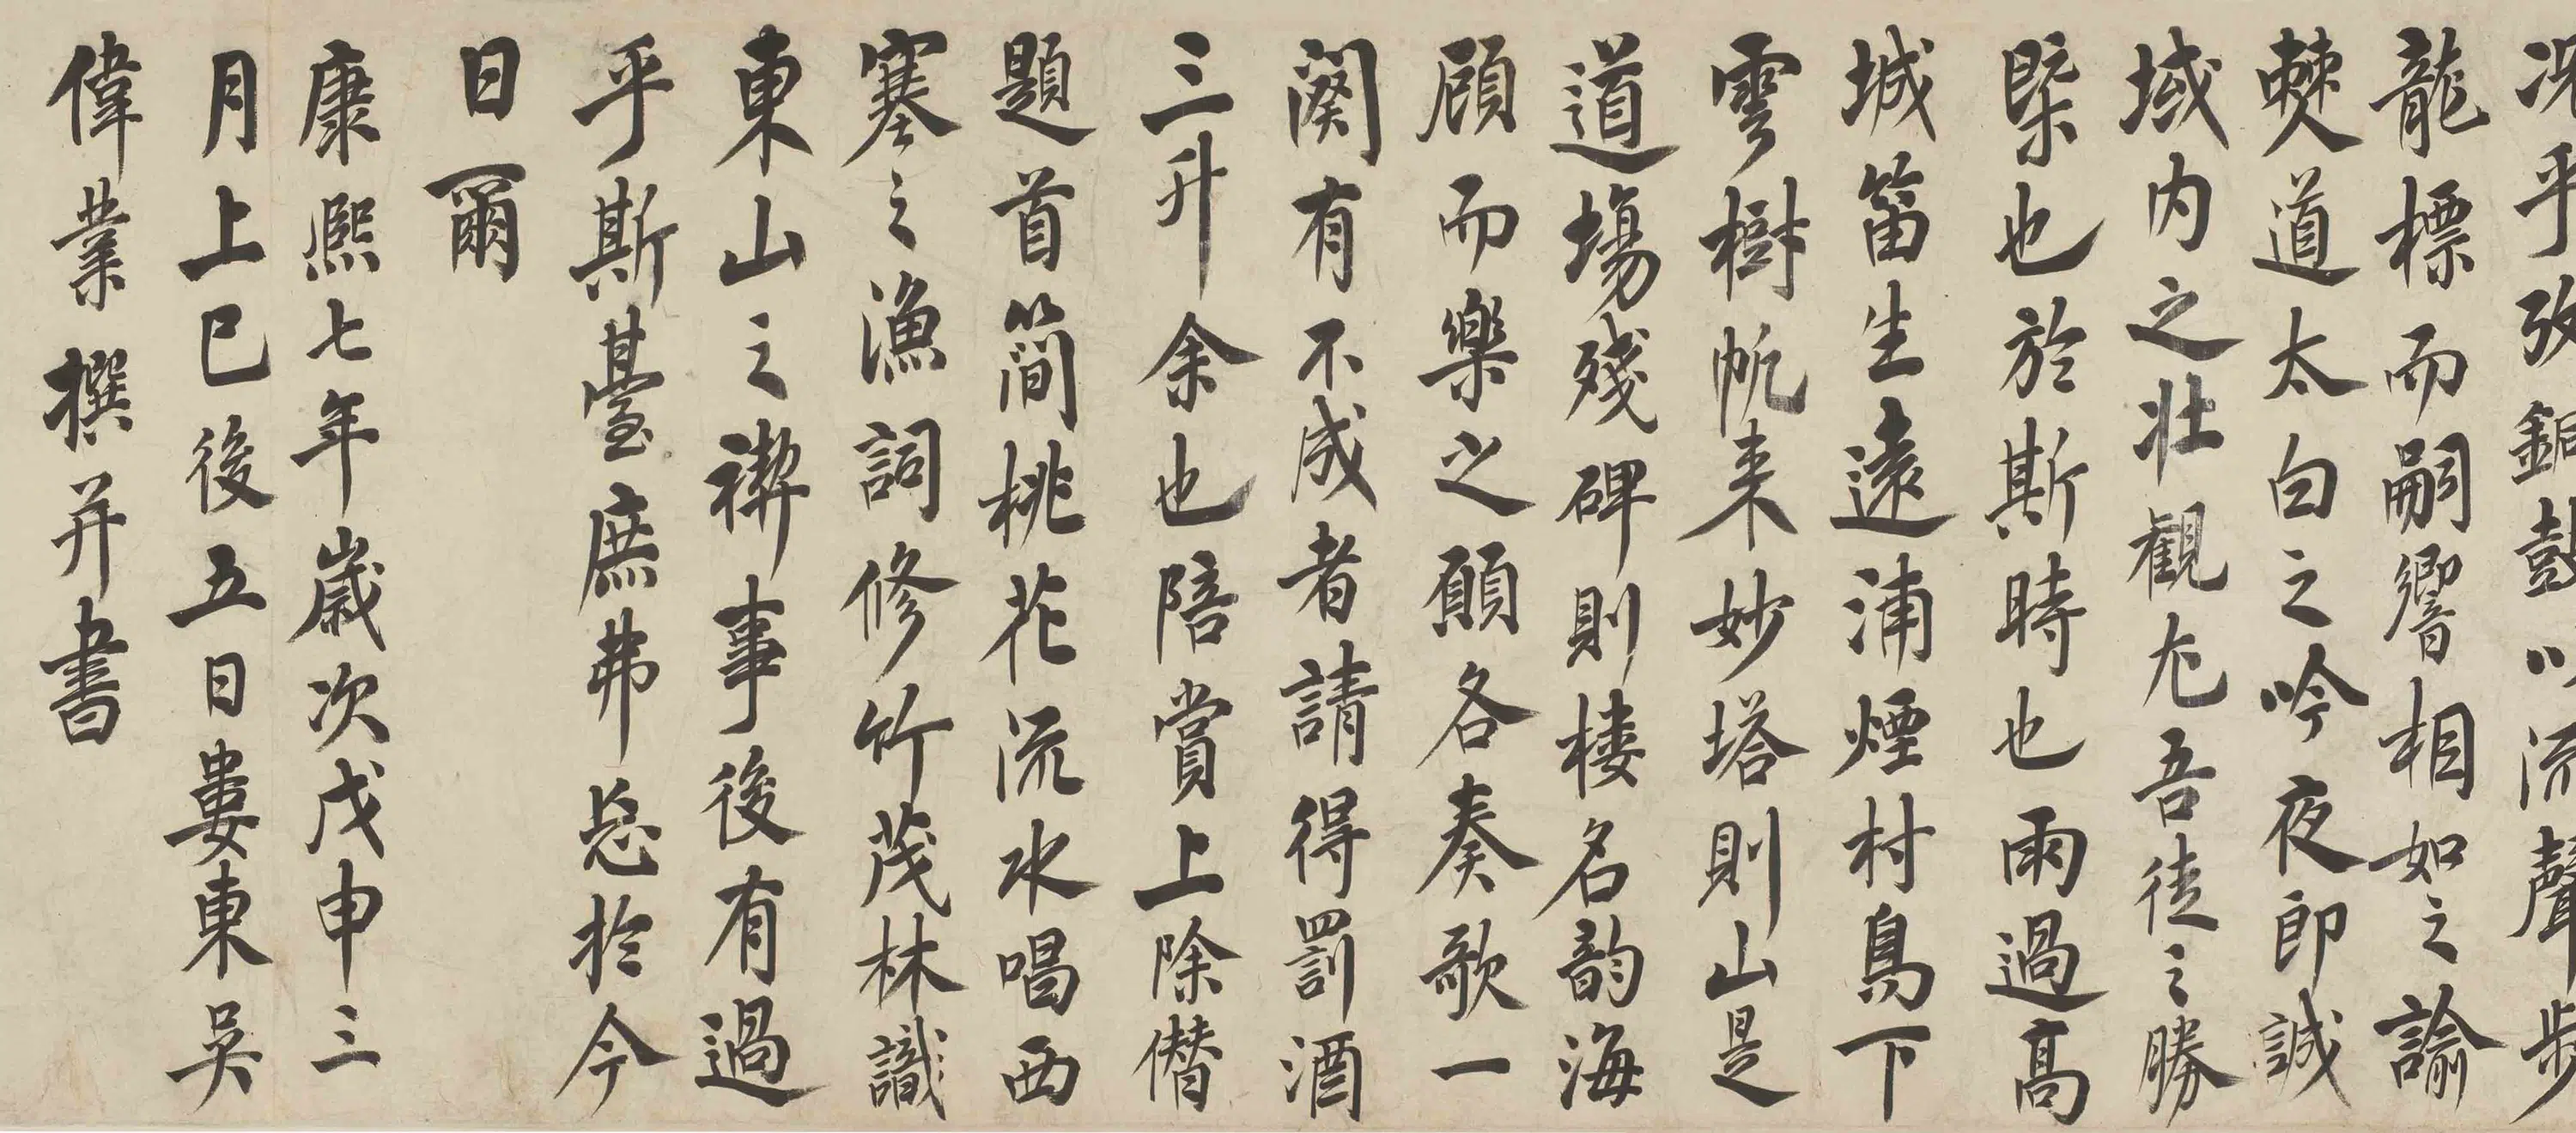 况乎攷銅鼓以流聲步
龍標而嗣響相如之諭
僰道太白之吟夜郎誠
域内之壯觀尤吾徒之勝
槩也於斯時也雨過髙
城笛生遠浦煙村鳥下
雲樹帆来妙塔則山是
道場殘碑則楼名韵海
顧而樂之願各奏歌一
闋有不成者請得罰酒
三升余也陪賞上除僭
題首簡桃花流水唱西
塞之漁詞修竹茂林識
東山之禊事後有過
乎斯臺庶弗忘於今
日爾
康熙七年歲次戊申三
月上巳後五日婁東吳
偉業撰并書